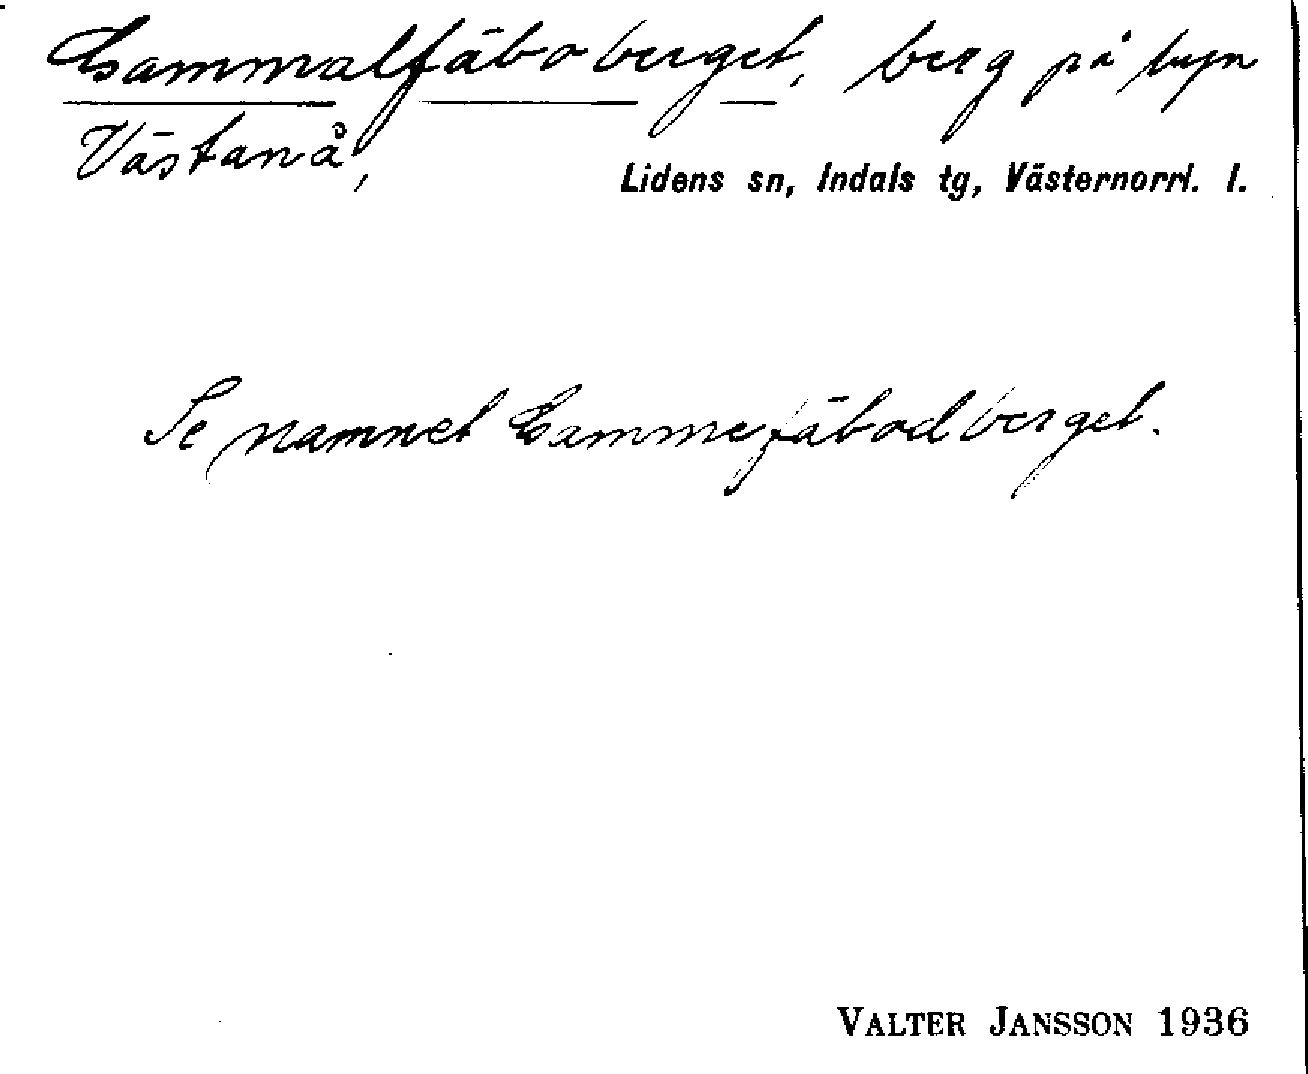 Gammalfäboberget, berg på byn
Västanå,
Lidens sn, Indals tg, Västernorrl. l.
Se namnet Gammefäbodberget.
VALTER JANSSON 1936